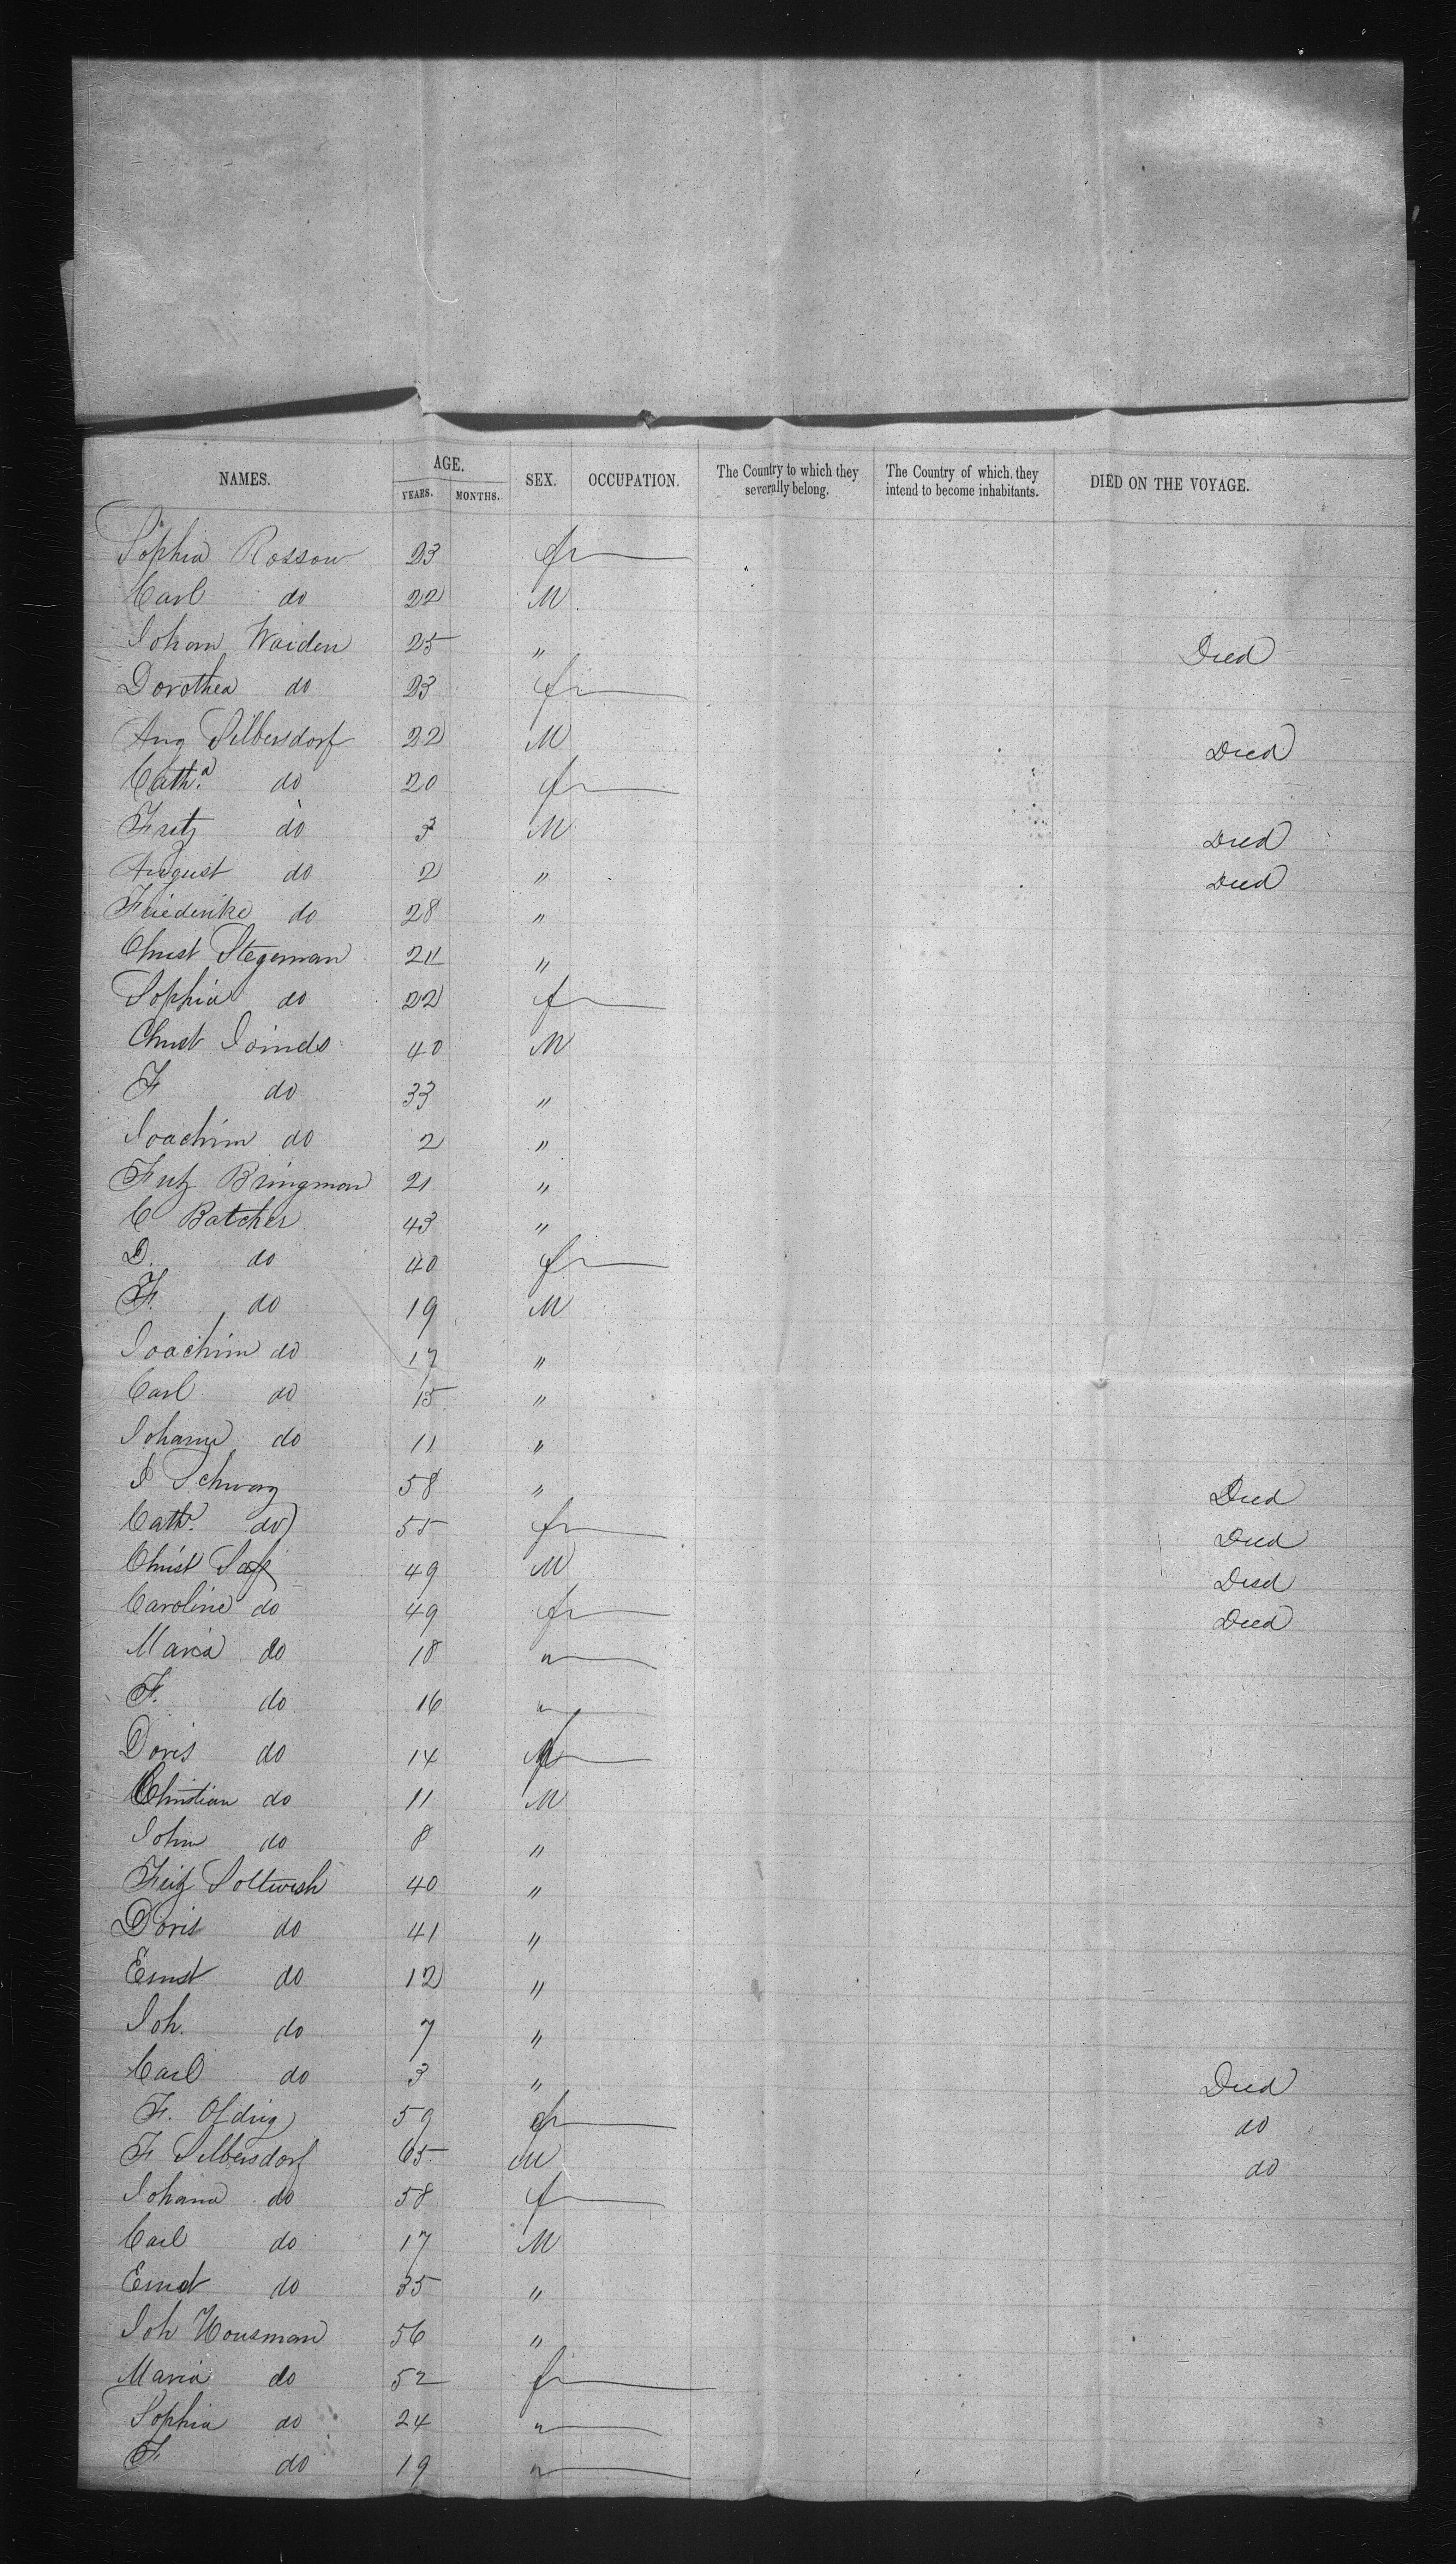 NAMES. AGE. SEX. OCCUPATION. The Country to which they severally belong. The Country of which they intend to become inhabitants. DIED ON THE VOYAGE.
YEARS. MONTHS.
Sophia Rossow 23 f
Carl do 22 M
Johan Waiden 25 " Died
Dorothea do 23 f
Aug Silbersdorf 22 M Died
Cath.a do 20 f
Fritz do 3 M Died
August do 2 " Died
Friederike do 28 "
Christ Stegeman 24 "
Sophia do 22 f
Christ 40 M
F do 33 "
Joachim do 2 "
Fritz Bringman 21 "
C Batcher 43 "
D. do 40 f
F. do 19 M
Joachim do 17 "
Carl do 15 "
Johann do 11 "
J Schwarz 58 " Died
Cath. do 55 f Died
Christ 49 M Died
Caroline do 49 f Died
Maria do 18 "
F. do 16 "
Doris do 14 f
Christian do 11 M
John do 8 "
Fritz Soltwish 40 "
Doris do 41 "
Ernst do 12 "
Joh. do 7 "
Carl do 3 " Died
F. 59 f do
F Silbersdorf 65 M do
Johana do 58 f
Carl do 17 M
Ernst do 35 "
Joh Housman 56 "
Maria do 52 f
Sophia do 24 "
F do 19 "